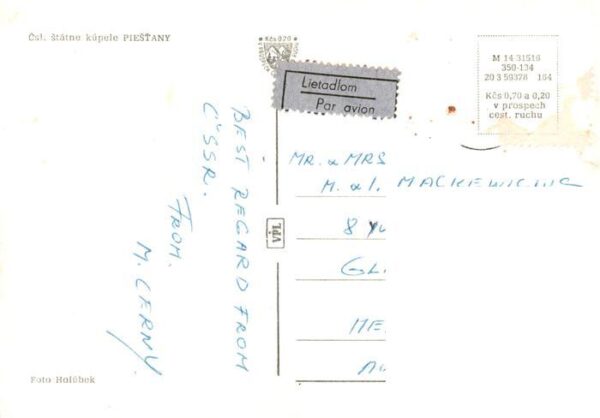 Čsl. štátne kúpele PIEŠŤANY
Kčs 0,20
Lietadlom
Par avion
M 14-31516
350-134
20 3 59378 164
Kčs 0,70 a 0,20
v prospech
cest. ruchu
BEST REGARD FROM
ČSSR.
FROM.
M. CERNY.
VPL
MR. & MRS
M. & I. MACKEWICINC
8
Foto Holúbek